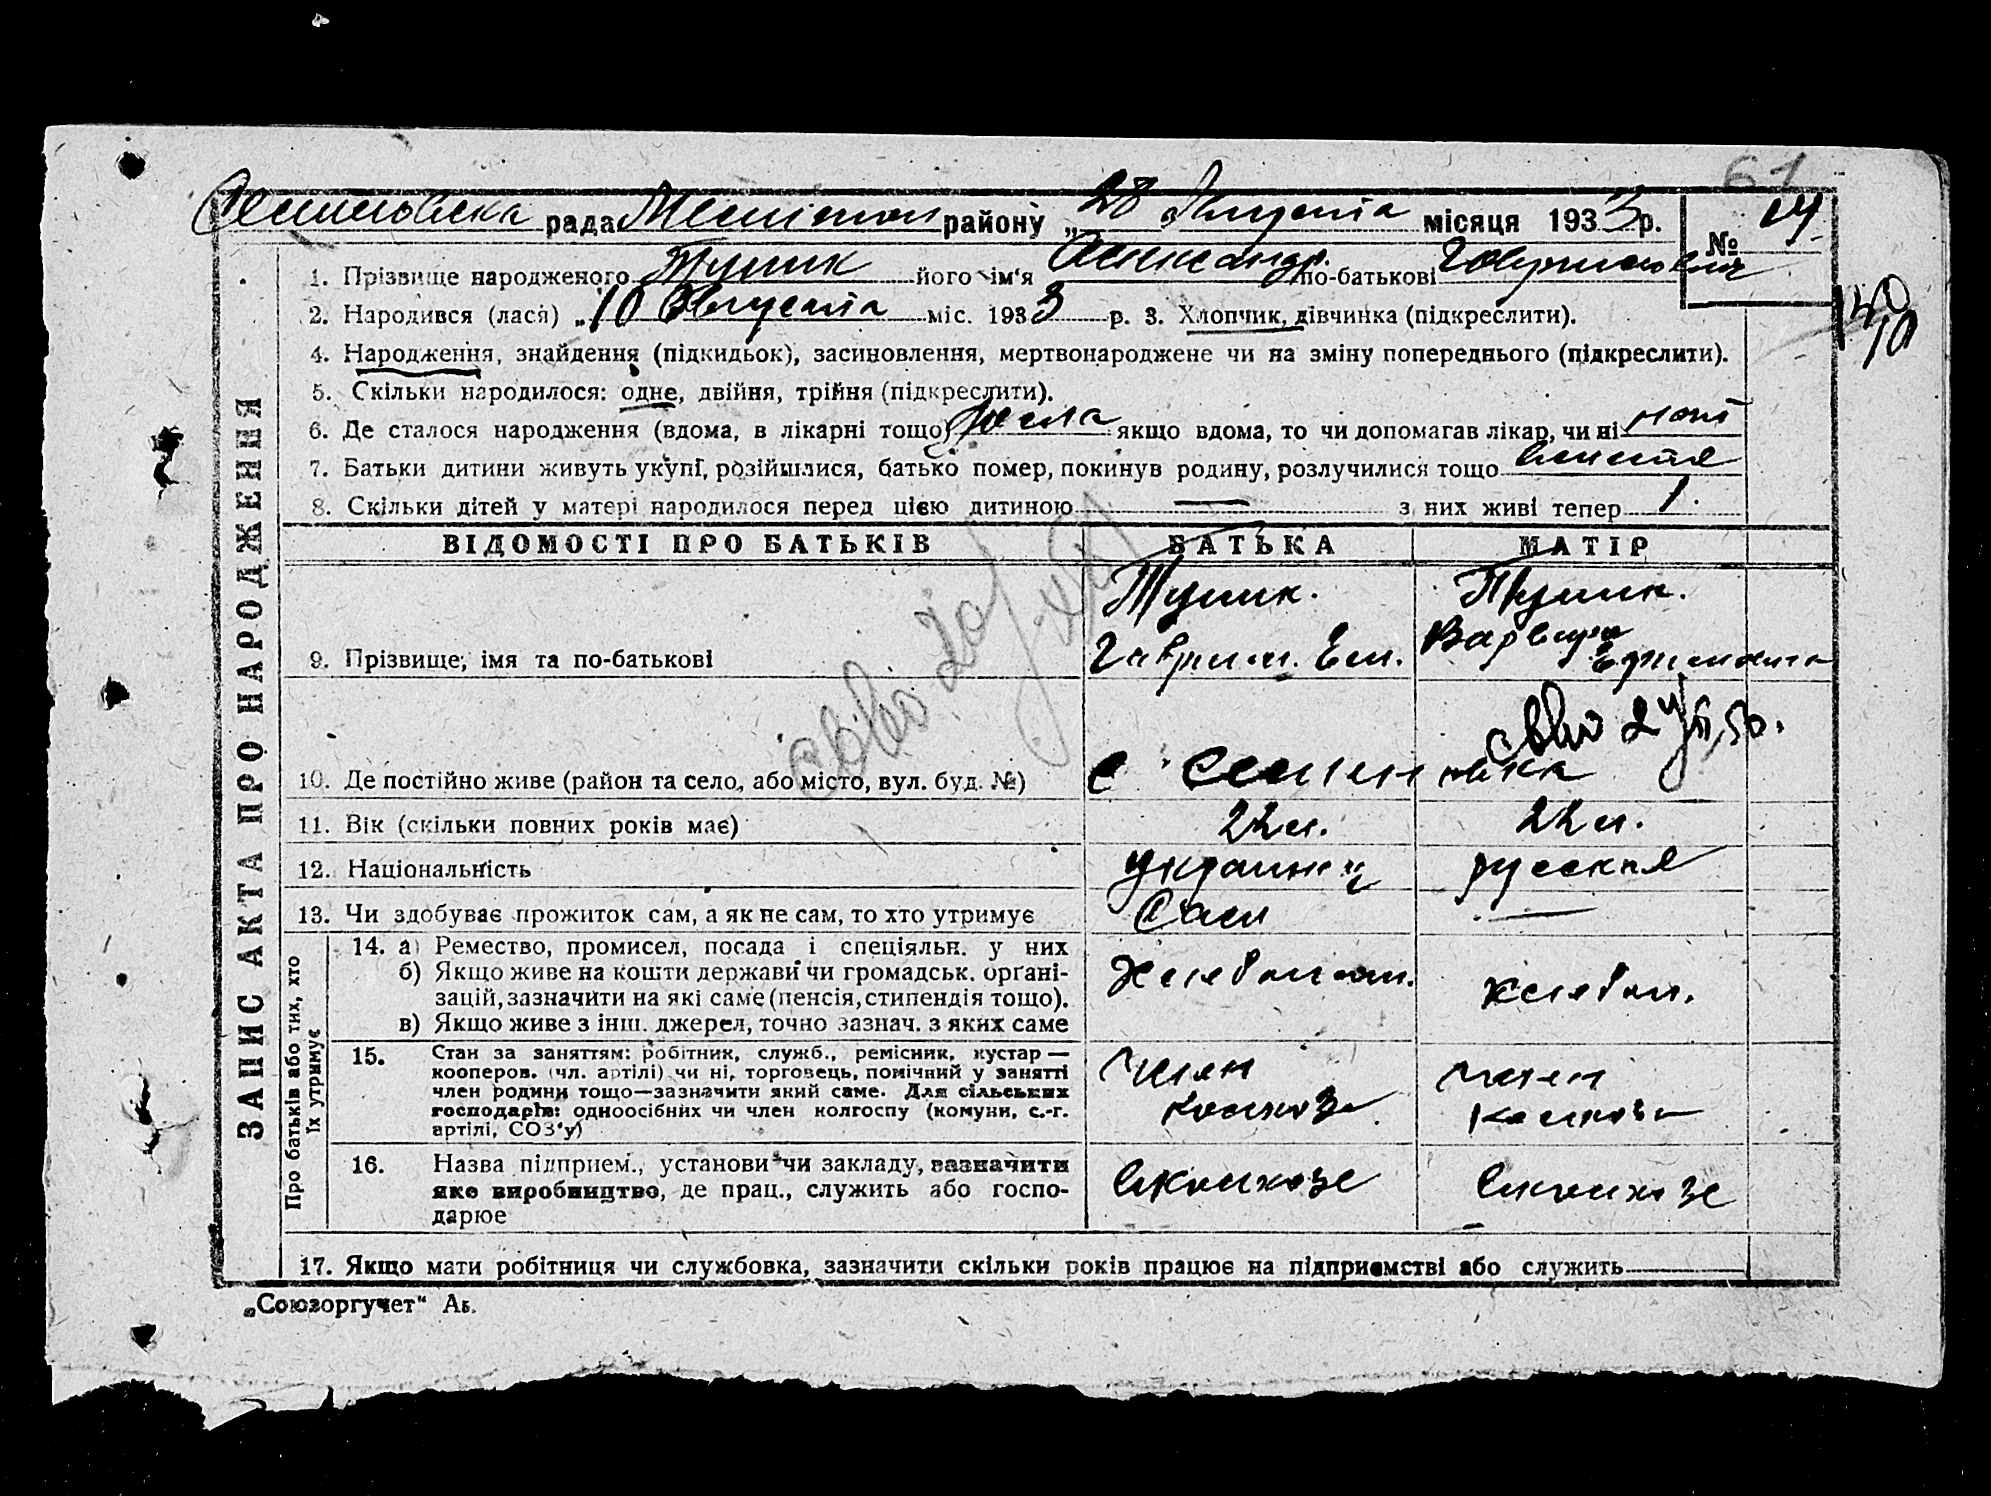 61
рада Мелітоп району „28 Августа місяця 1933 р. № 14
1. Прізвище народженого Тупик його ім'я Александр. по-батькові Гаврилович
140
10
2. Народився (лася) „10 Августа міс. 1933 р. 3. Хлопчик, дівчинка (підкреслити).
4. Народження, знайдення (підкидьок), засиновлення, мертвонароджене чи на зміну попереднього (підкреслити).
5. Скільки народилося: одне, двійня, трійня (підкреслити).
6. Де сталося народження (вдома, в лікарні тощо) якщо вдома, то чи допомагав лікар, чи ні
7. Батьки дитини живуть укупі, розійшлися, батько помер, покинув родину, розлучилися тощо вместе
8. Скільки дітей у матері народилося перед цією дитиною — з них живі тепер 1.
ЗАПИС АКТА ПРО НАРОДЖЕННЯ
ВІДОМОСТІ ПРО БАТЬКІВ БАТЬКА МАТІР
Тупик. Тупик.
9. Прізвище, імя та по-батькові Гаврил. Ем. Варвара
10. Де постійно живе (район та село, або місто, вул. буд. №) с
11. Вік (скільки повних років має) 22 л. 22 л.
12. Національність украинец русская
13. Чи здобуває прожиток сам, а як не сам, то хто утримує Сам —
Про батьків або тих, хто
їх утримує
14. а) Ремество, промисел, посада і спеціяльн. у них
б) Якщо живе на кошти держави чи громадськ. орґані-
зацій, зазначити на які саме (пенсія, стипендія тощо).
в) Якщо живе з інш. джерел, точно зазнач. з яких саме
Хлебопаш. хлебоп.
15. Стан за заняттям: робітник, служб., ремісник, кустар —
кооперов. (чл. артілі) чи ні, торговець, помічний у занятті
член родини тощо—зазначити який саме. Для сільських
господарів: одноосібних чи член колгоспу (комуни, с.-г.
артілі, СОЗ'у)
член член
колхоза колхоза
16. Назва підприєм., установи чи закладу, зазначити
яке виробництво, де прац., служить або госпо-
дарює
в колхозе в колхозе
17. Якщо мати робітниця чи службовка, зазначити скільки років працює на підприємстві або служить
„Союзоргучет“